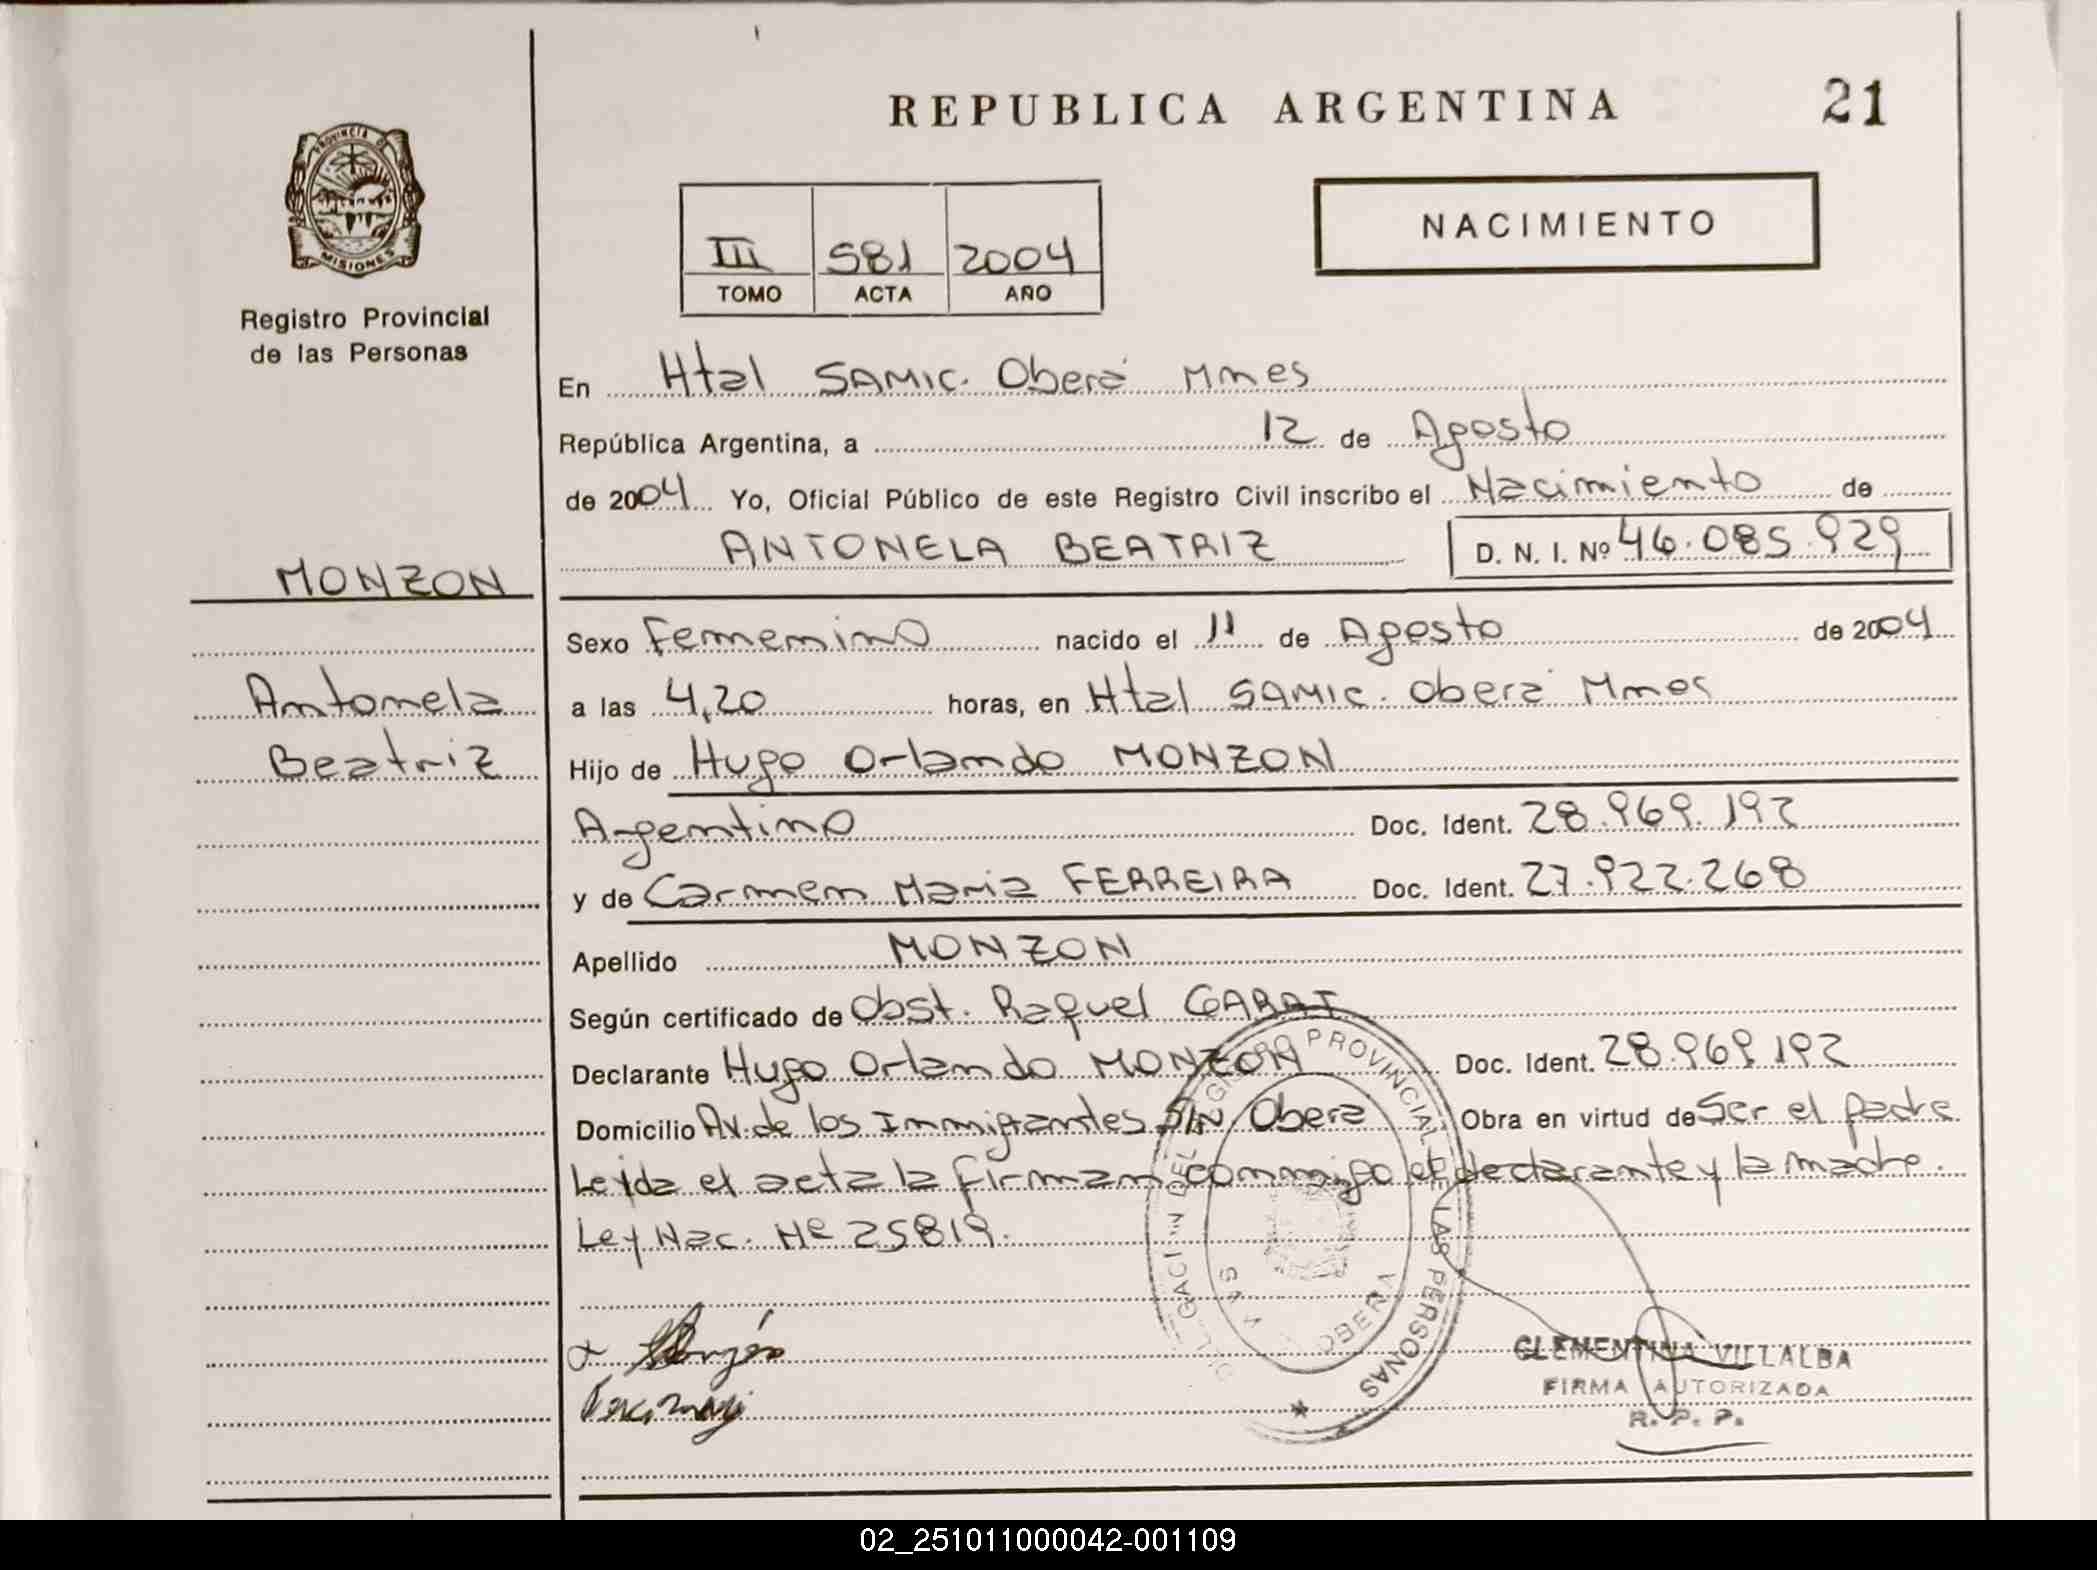 REPUBLICA ARGENTINA
21
PROVINCIA DE
MISIONES
Registro Provincial
de las Personas
III 581 2004
TOMO ACTA AÑO
NACIMIENTO
En Htal SAMIC. Oberá Mnes
República Argentina, a 12 de Agosto
de 2004 Yo, Oficial Público de este Registro Civil inscribo el Nacimiento de
ANTONELA BEATRIZ D. N. I. Nº 46.085.929
MONZON
Sexo Femenino nacido el 11 de Agosto de 2004
Antonela
a las 4,20 horas, en Htal SAMIC. Oberá Mnes
Beatriz
Hijo de Hugo Orlando MONZON
Argentino Doc. Ident. 28.969.192
y de Carmen Maria FERREIRA Doc. Ident. 27.922.268
Apellido MONZON
Según certificado de Obst. Raquel
Declarante Hugo Orlando MONZON Doc. Ident. 28.969.192
Domicilio Av. de los Inmigrantes S/N Obera Obra en virtud de Ser el padre
Leída el acta la firman conmigo el declarante y la madre.
Ley Nac. Nº 25819.
REGISTRO PROVINCIAL DE LAS PERSONAS
OBERA
CLEMENTINA VILLALBA
FIRMA AUTORIZADA
R. P. P.
02_251011000042-001109